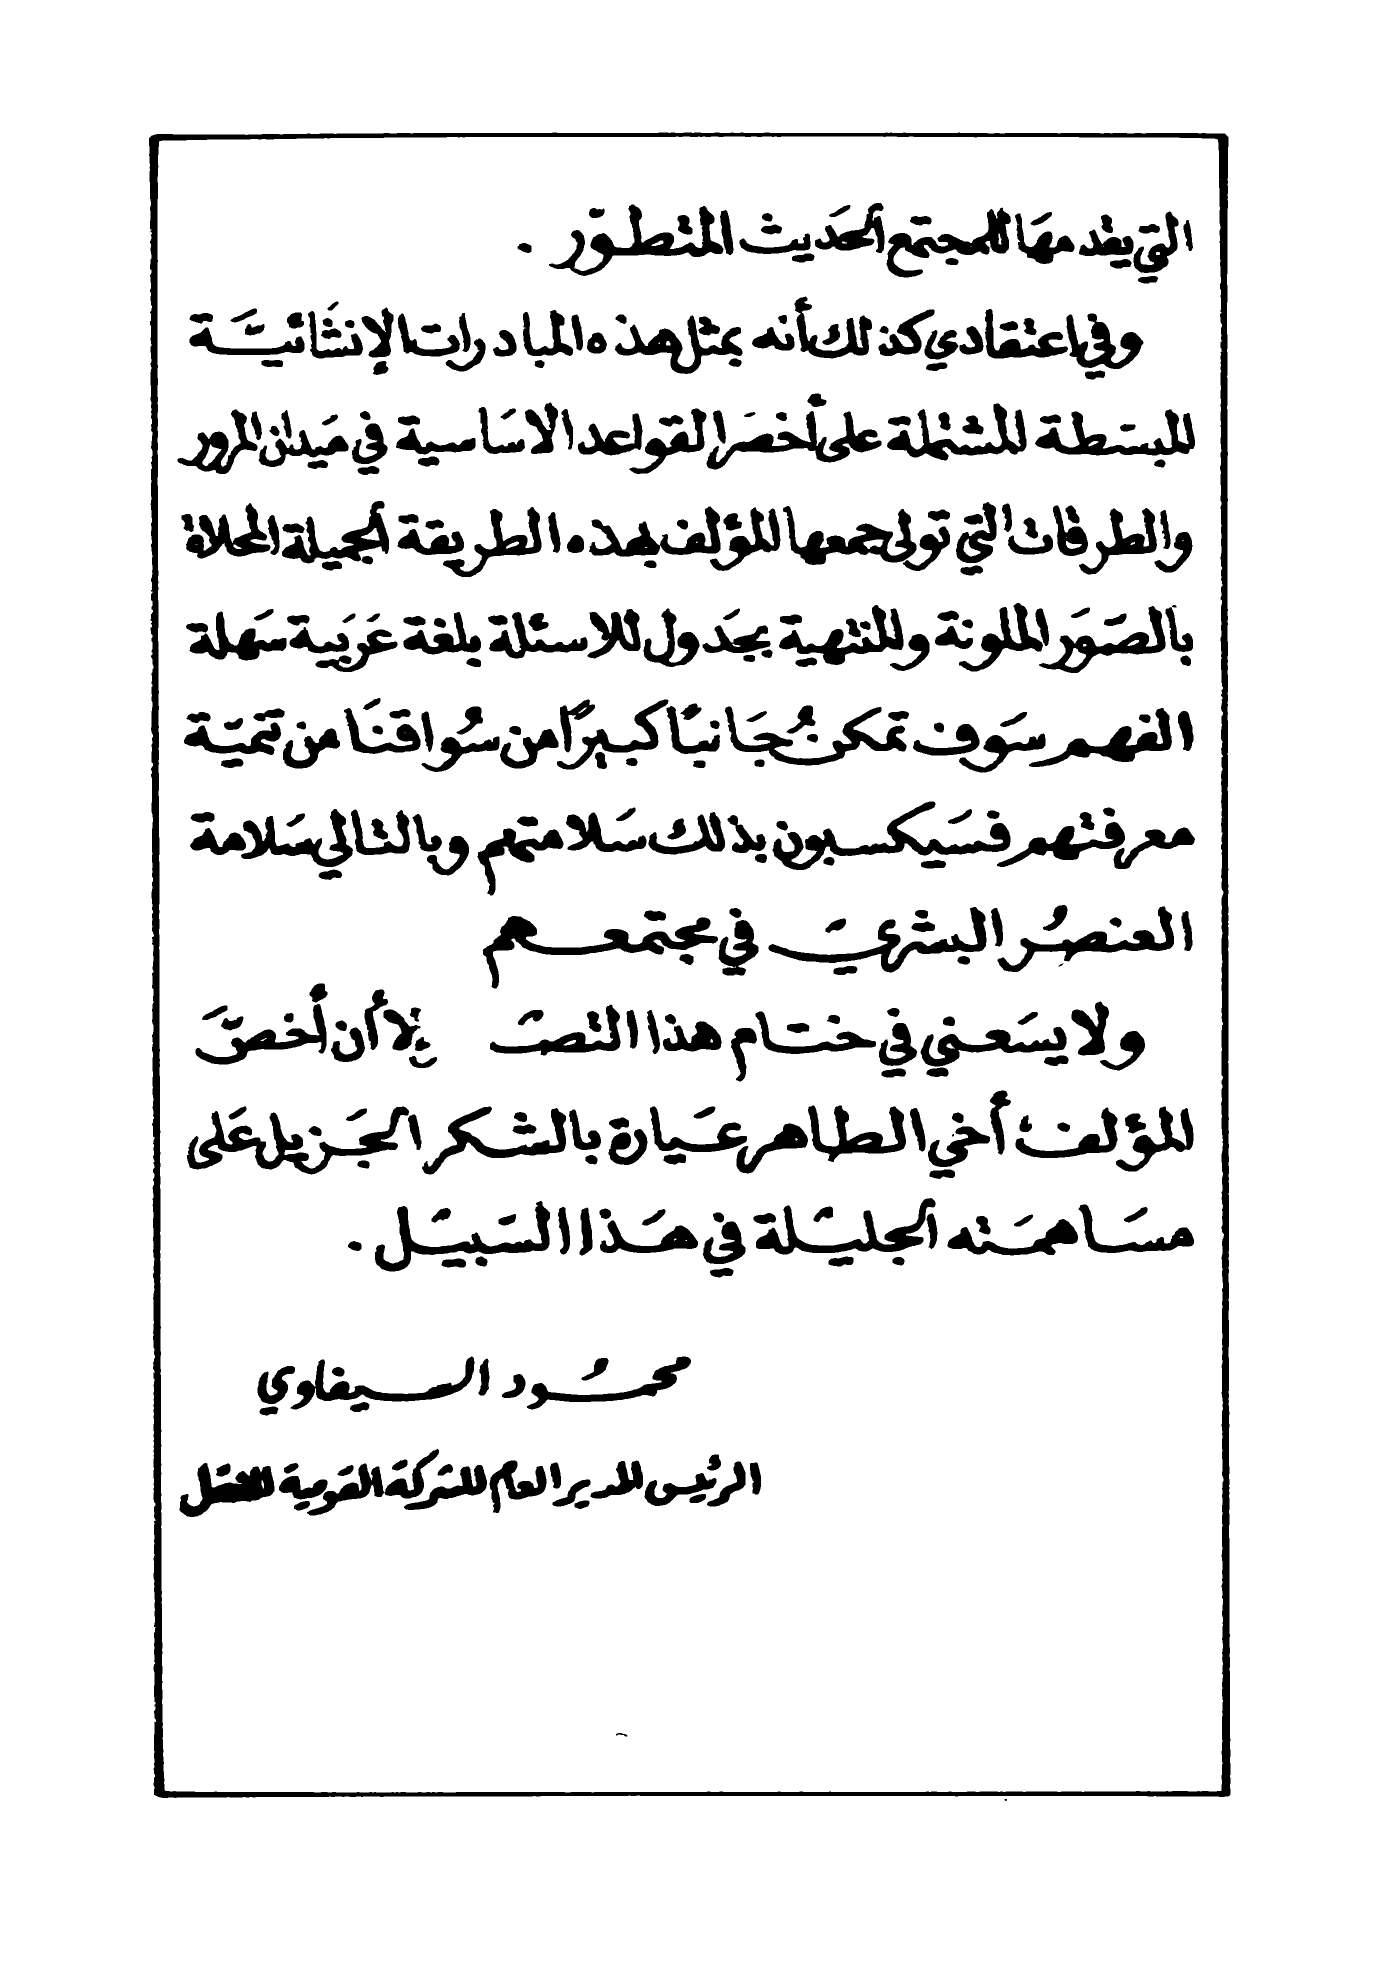 التي يقدمهَا للمجتمع الحَديث المتطوّر .
وفي اعتقادي كذلك أنه بمثل هذه المبادرات الإنشَائيَّة
المبسَطة المشتملة على أخصَر القواعد الاسَاسية في مَيدان المرور
والطرقات التي تولى جمعها المؤلف بهذه الطريقة الجميلة المحلاة
بالصَوَر الملونة والمنتهية بجَدول للاسئلة بلغة عَرَبية سَهلة
الفهم سَوف تمكنُ جَانبًا كبيرًا من سُواقنَا من تنميَة
معرفتهم فسَيكسبون بذلك سَلامتهم وبالتالي سَلامة
العنصُر البشريّ في مجتمعهم
ولا يسَعني في ختَام هذا إلا أن أخصَّ
المؤلف أخي الطاهر عَيارة بالشكر الجَزيل عَلى
مسَاهمَته الجليلَة في هَذا السَبيَل .
محمُود السيفاوي
الرئيس المدير العام للشركة القومية للنقل